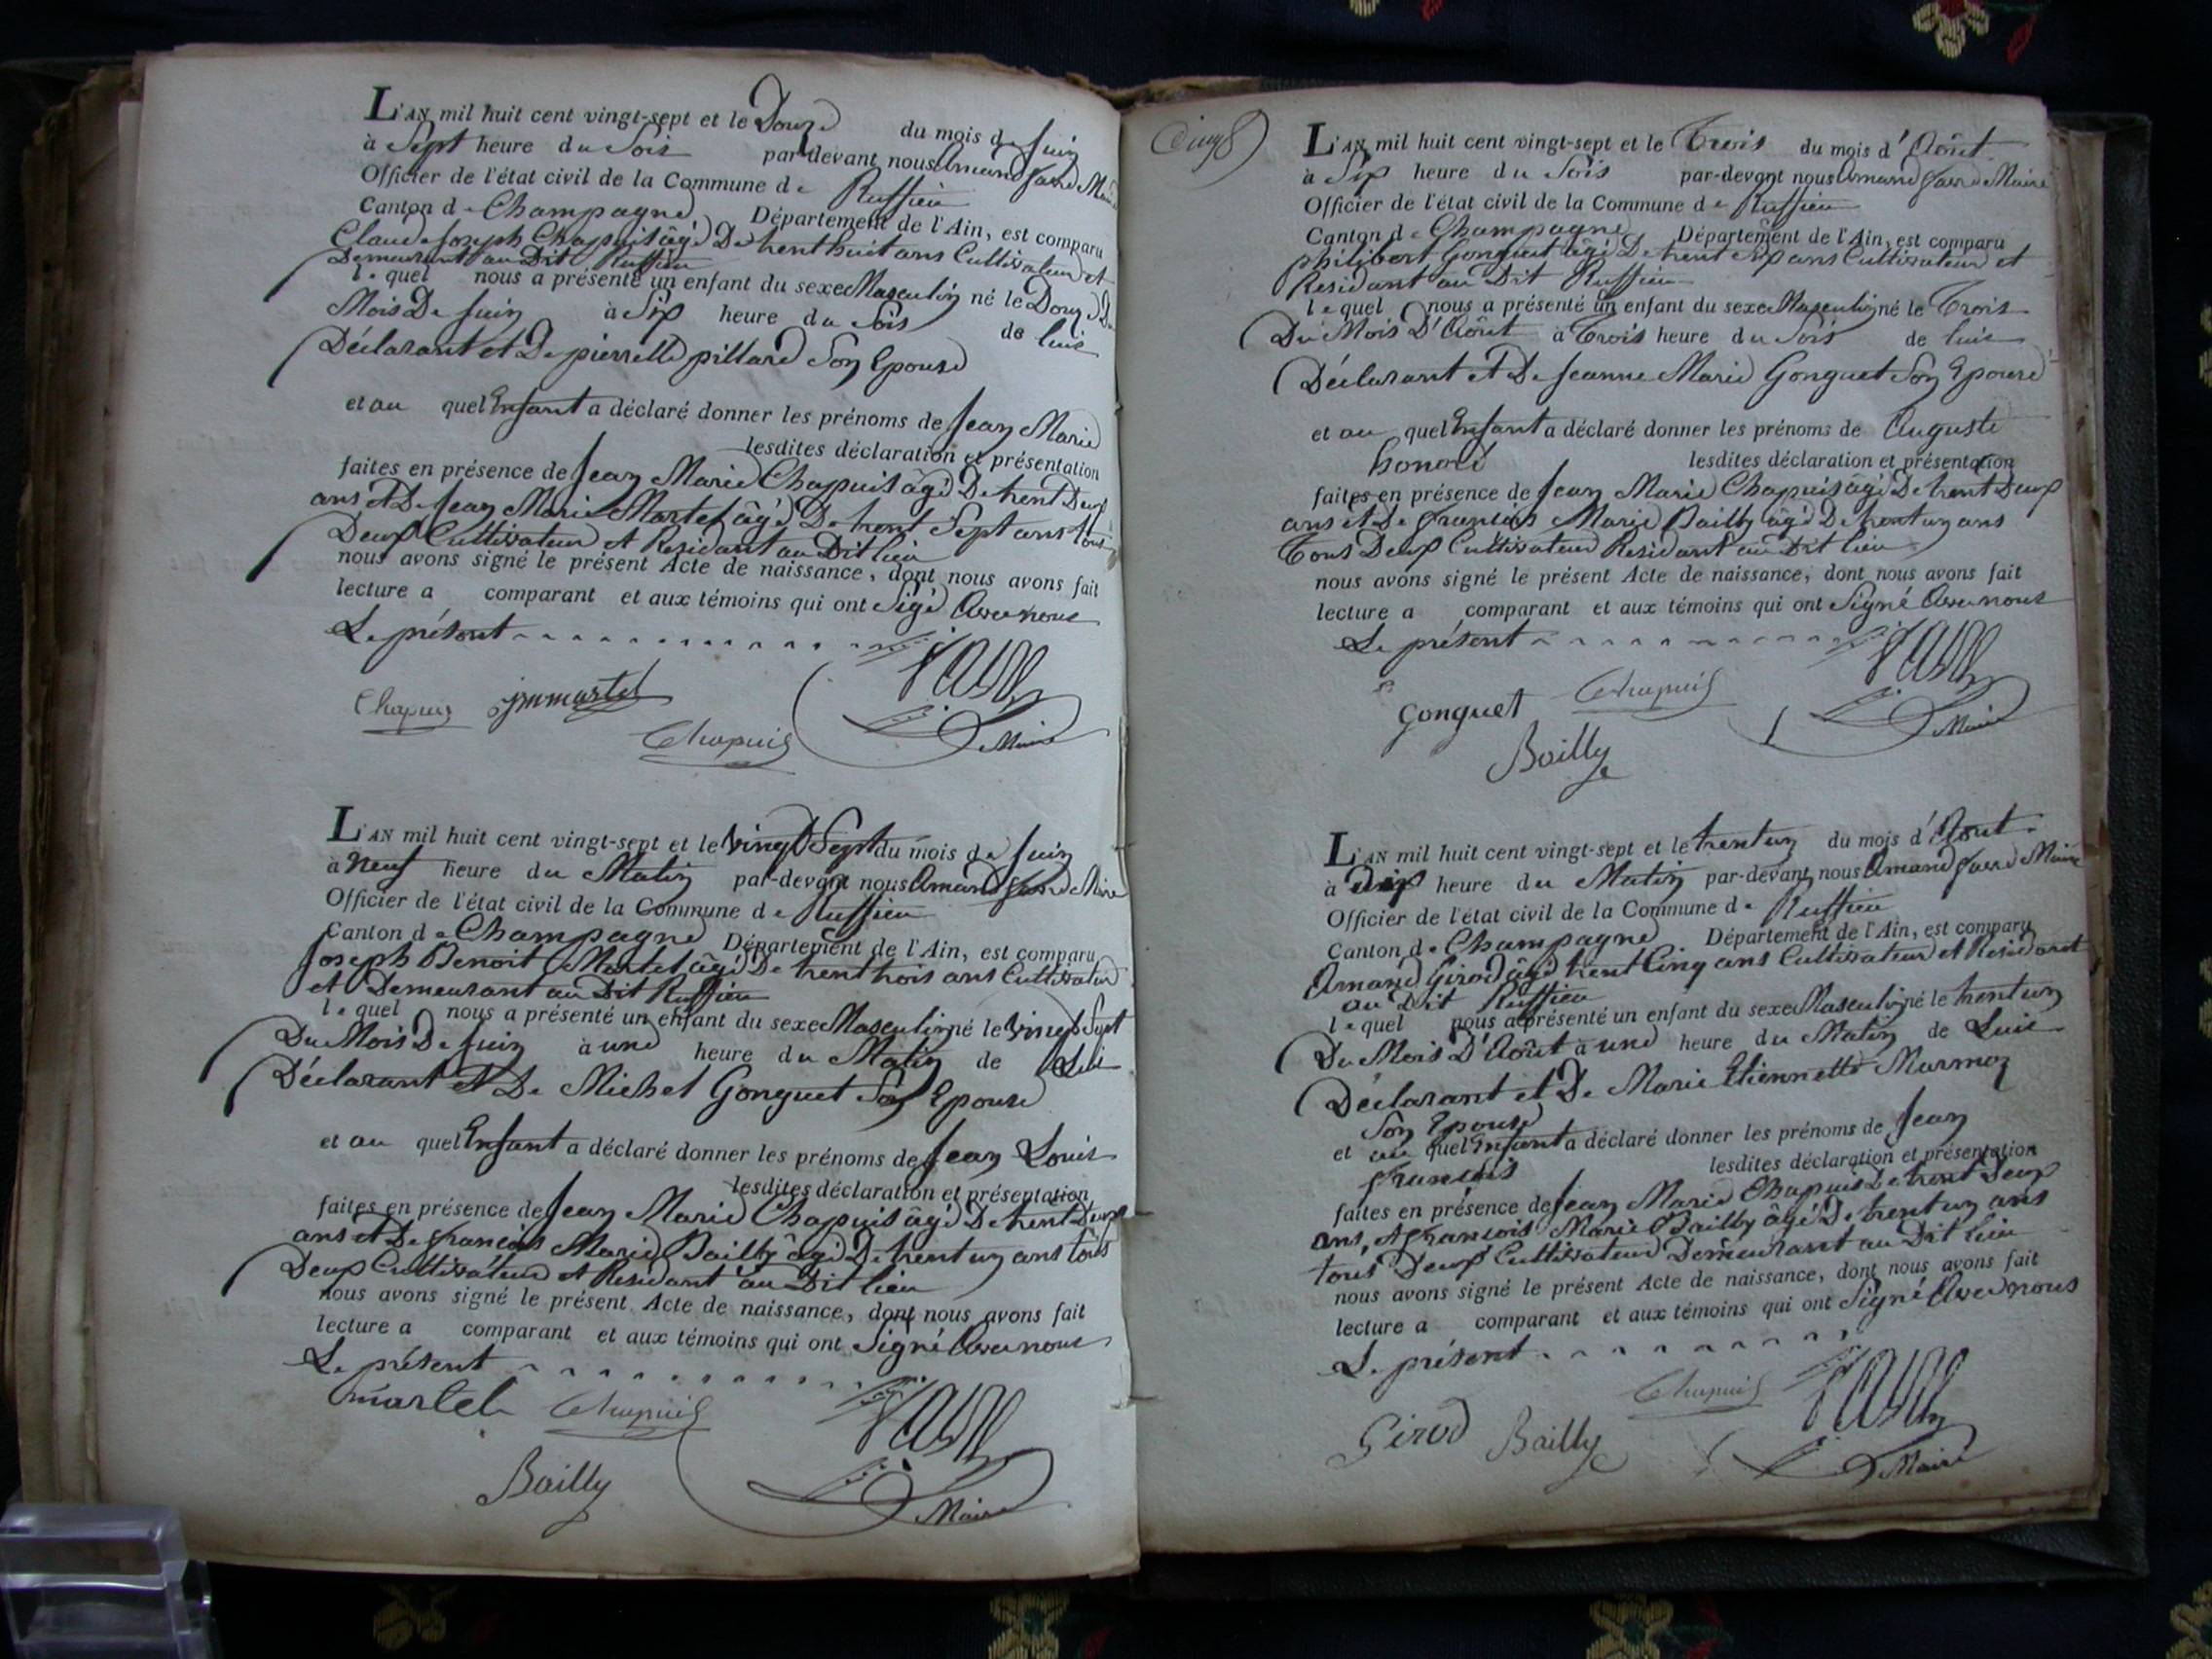 L'AN mil huit cent vingt-sept et le Douze du mois de Juin
à Sept heure du Soir par-devant nous Amand favre Maire
Officier de l'état civil de la Commune de Ruffieu
Canton de Champagne Département de l'Ain, est comparu
Claude Joseph Chapuis âgé De trent huit ans Cultivateur et
Demeurant au Dit Ruffieu
le quel nous a présenté un enfant du sexe Masculin né le Douze Du
Mois De Juin à Six heure du Soir de luie
Déclarant et De pierrette pillard Son Epouse
et au quel Enfant a déclaré donner les prénoms de Jean Marie
lesdites déclaration et présentation
faites en présence de Jean Marie Chapuis âgé De trent Deux
ans et De Jean Marie Martel âgé De trent Sept ans tous
Deux Cultivateur et Residant au Dit lieu
nous avons signé le présent Acte de naissance, dont nous avons fait
lecture a comparant et aux témoins qui ont Sigé Avec nous
Le présent
Chapuis jmmartel
Chapuis Maire
L'AN mil huit cent vingt-sept et le vingt Sept du mois de Juin
à neuf heure du Matin par-devant nous Amand favre Maire
Officier de l'état civil de la Commune de Ruffieu
Canton de Champagne Département de l'Ain, est comparu
Joseph Benoit Martel âgé De trent trois ans Cultivateur
et Demeurant au Dit Ruffieu
le quel nous a présenté un enfant du sexe Masculin né le vingt Sept
Du Mois De Juin à une heure du Matin de Lui
Déclarant et De Michel Gonguet Son Epouse
et au quel Enfant a déclaré donner les prénoms de Jean Louis
lesdites déclaration et présentation
faites en présence de Jean Marie Chapuis âgé De trent Deux
ans et De françois Marie Bailly âgé De trent un ans tous
Deux Cultivateur et Residant au Dit lieu
nous avons signé le présent Acte de naissance, dont nous avons fait
lecture a comparant et aux témoins qui ont Signé Avec nous
Le présent
martel Chapuis
Bailly Maire
L'AN mil huit cent vingt-sept et le Trois du mois d'Aôut
à Six heure du Soir par-devant nous Amand favre Maire
Officier de l'état civil de la Commune de Ruffieu
Canton de Champagne Département de l'Ain, est comparu
philibert Gonguet âgé De trent Six ans Cultivateur et
Residant au Dit Ruffieu
le quel nous a présenté un enfant du sexe Masculin né le Trois
Du Mois D'Aôut à Trois heure du Soir de luie
Déclarant et De Jeanne Marie Gonguet Son Epouse
et au quel Enfant a déclaré donner les prénoms de Auguste
honoré lesdites déclaration et présentation
faites en présence de Jean Marie Chapuis âgé De trent Deux
ans et De françois Marie Bailly âgé De trent un ans
Tous Deux Cultivateur Residant au Dit lieu
nous avons signé le présent Acte de naissance, dont nous avons fait
lecture a comparant et aux témoins qui ont Signé Avec nous
Le présent
Gonguet Chapuis
Bailly Maire
L'AN mil huit cent vingt-sept et le trent un du mois d'Aôut
à Dix heure du Matin par-devant nous Amand favre Maire
Officier de l'état civil de la Commune de Ruffieu
Canton de Champagne Département de l'Ain, est comparu
Amand Girod âgé trent Cinq ans Cultivateur et Residant
au Dit Ruffieu
le quel nous a présenté un enfant du sexe Masculin né le trent un
Du Mois D'Aôut à une heure du Matin de Luie
Déclarant et De Marie Etiennette Marmoz
Son Epouse
et au quel Enfant a déclaré donner les prénoms de Jean
françois lesdites déclaration et présentation
faites en présence de Jean Marie Chapuis De trent Deux
ans, et françois Marie Bailly âgé De trent un ans
tous Deux Cultivateur Demeurant au Dit lieu
nous avons signé le présent Acte de naissance, dont nous avons fait
lecture a comparant et aux témoins qui ont Signé Avec nous
Le présent
Chapuis
Girod Bailly Maire